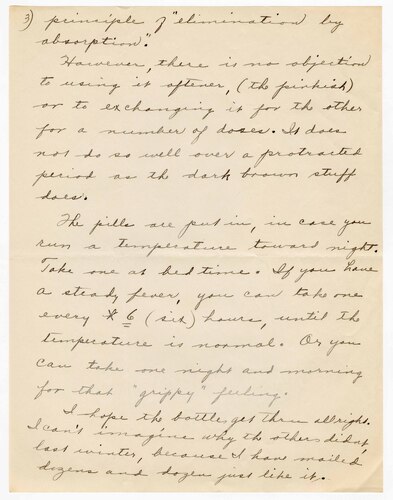 3) principle of "elimination by
absorption".
However, there is no objection
to using it oftener, (the pinkish)
or to exchanging it for the other
for a number of doses. It does
not do so well over a protracted
period as the dark brown stuff
does.
The pills are put in, in case you
run a temperature toward night.
Take one at bed time. If you have
a steady fever, you can take one
every 6 (six) hours, until the
temperature is normal. Or you
can take one night and morning
for that "grippy" feeling.
I hope the bottles get thru allright.
I can't imagine why the others didn't,
last winter, because I have mailed
dozens and dozen just like it.